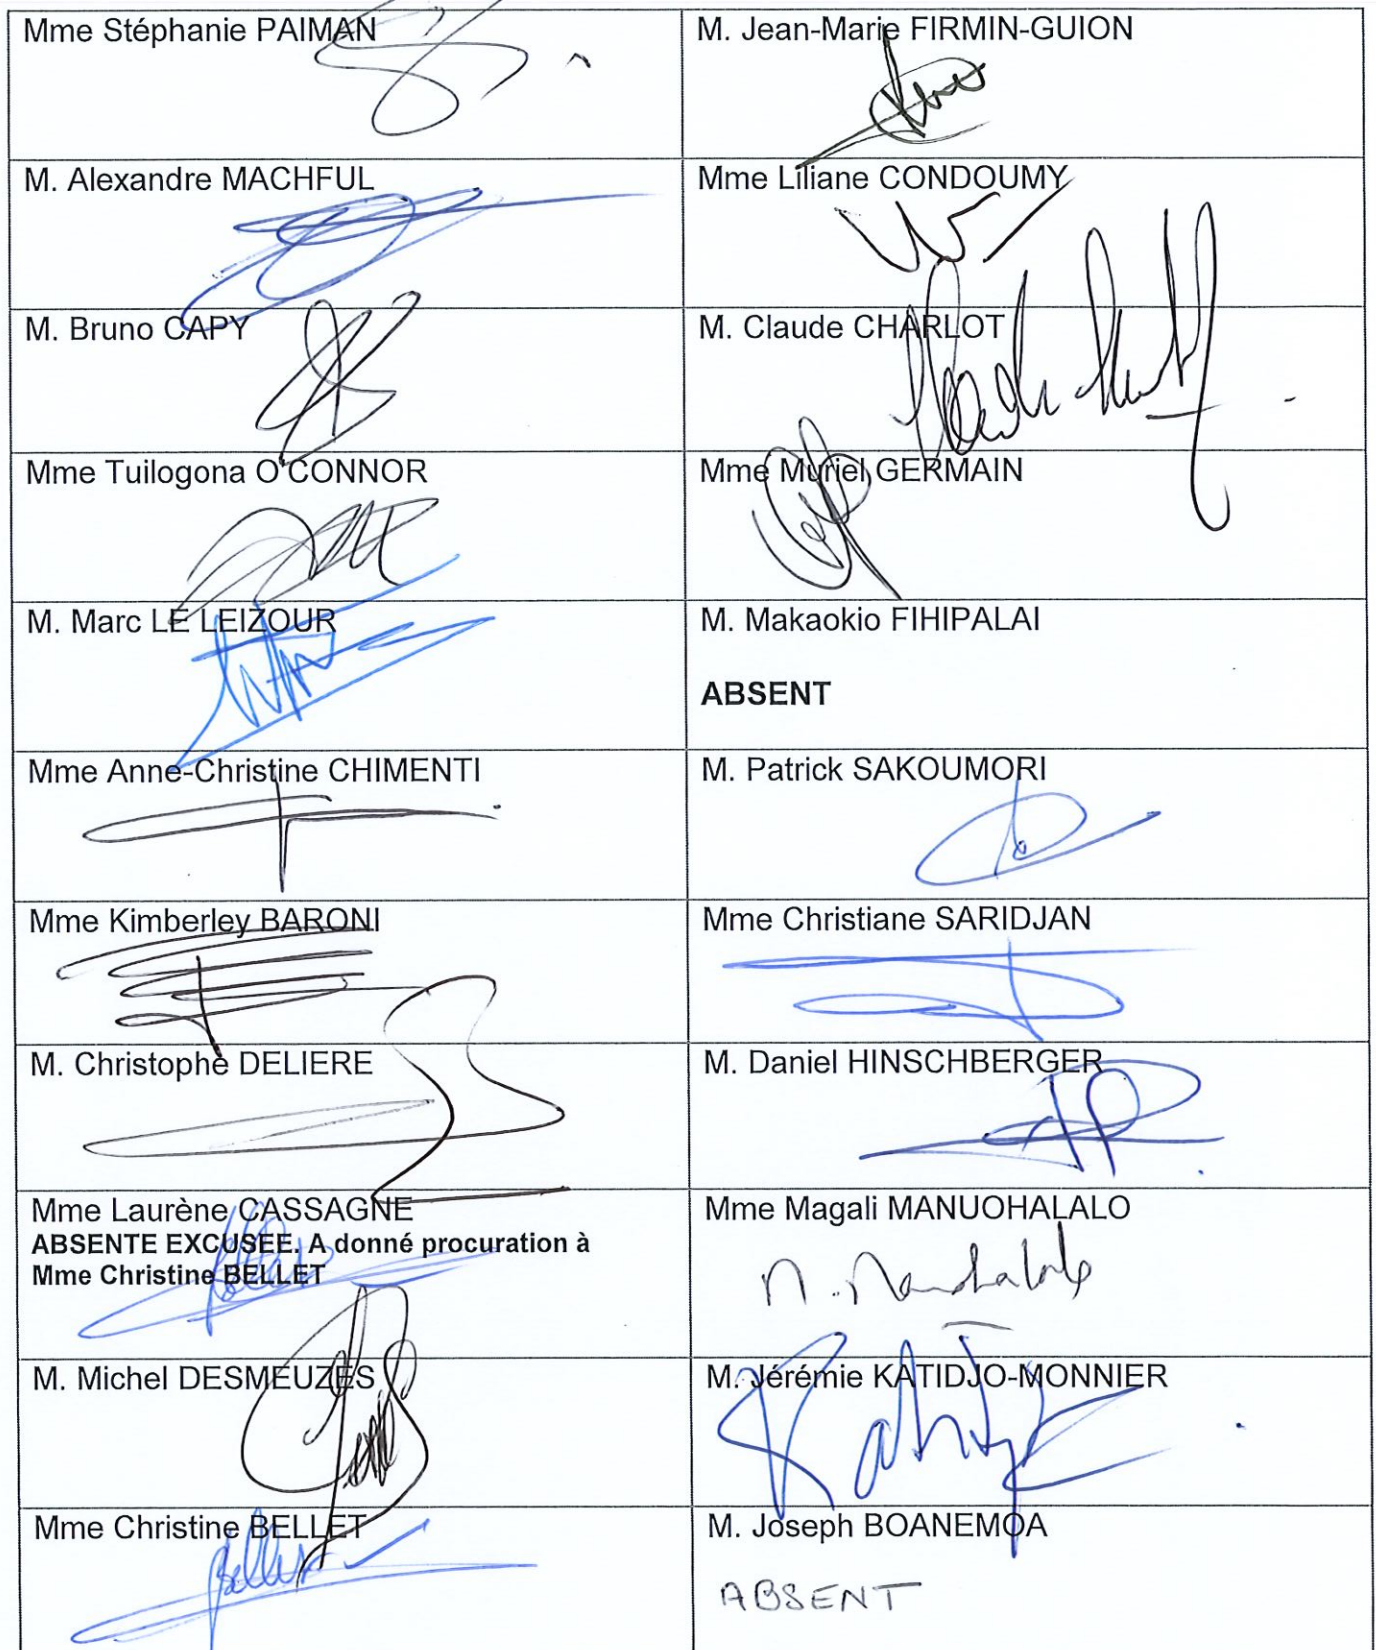 Mme Stéphanie PAIMAN
M. Jean-Marie FIRMIN-GUION
M. Alexandre MACHFUL
Mme Liliane CONDOUMY
M. Bruno CAPY
M. Claude CHARLOT
Mme Tuilogona O'CONNOR
Mme Muriel GERMAIN
M. Marc LE LEIZOUR
M. Makaokio FIHIPALAI
ABSENT
Mme Anne-Christine CHIMENTI
M. Patrick SAKOUMORI
Mme Kimberley BARONI
Mme Christiane SARIDJAN
M. Christophe DELIERE
M. Daniel HINSCHBERGER
Mme Laurène CASSAGNE
ABSENTE EXCUSEE. A donné procuration à
Mme Christine BELLET
Mme Magali MANUOHALALO
M. Michel DESMEUZES
M. Jérémie KATIDJO-MONNIER
Mme Christine BELLET
M. Joseph BOANEMOA
ABSENT